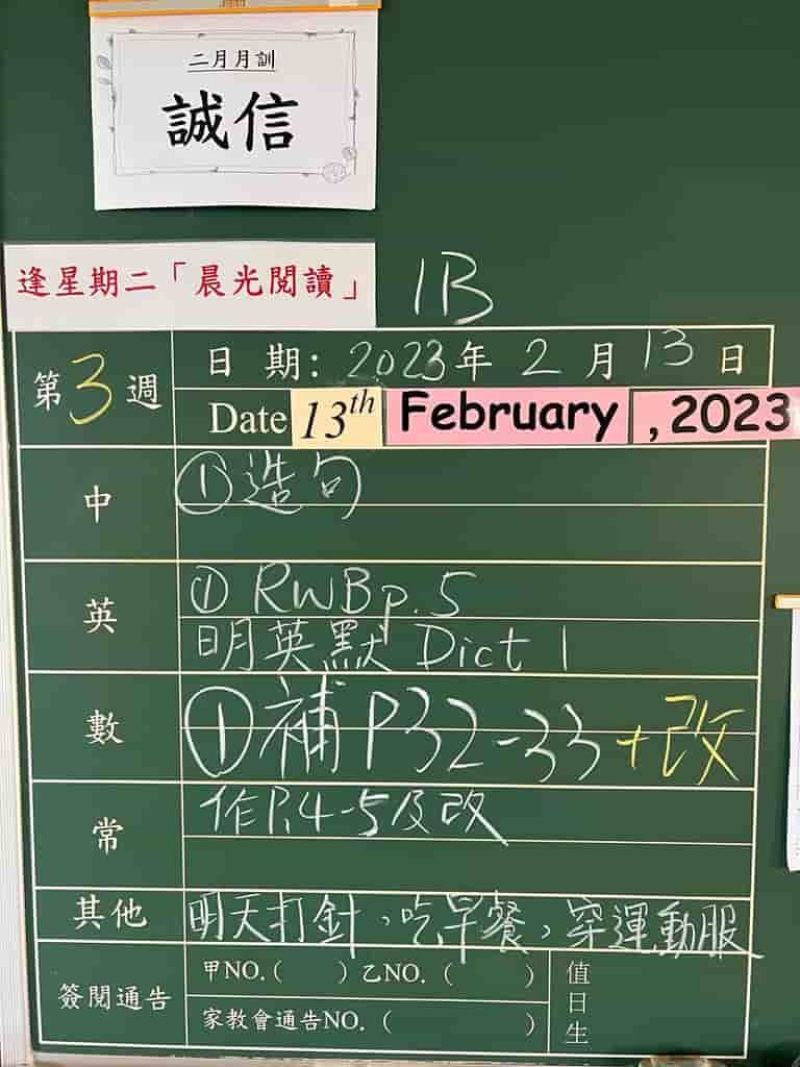 二月月訓
誠信
逢星期二「晨光閱讀」
1B
第3週
日 期: 2023年 2 月 13 日
Date 13th February , 2023
中
①造句
英
① RWBp.5
明英默 Dict 1
數
①補 P32-33+改
常
作P.4-5及改
其他
明天打針，吃早餐，穿運動服
簽閱通告
甲NO.( ) 乙NO. ( )
家教會通告NO. ( )
值日生